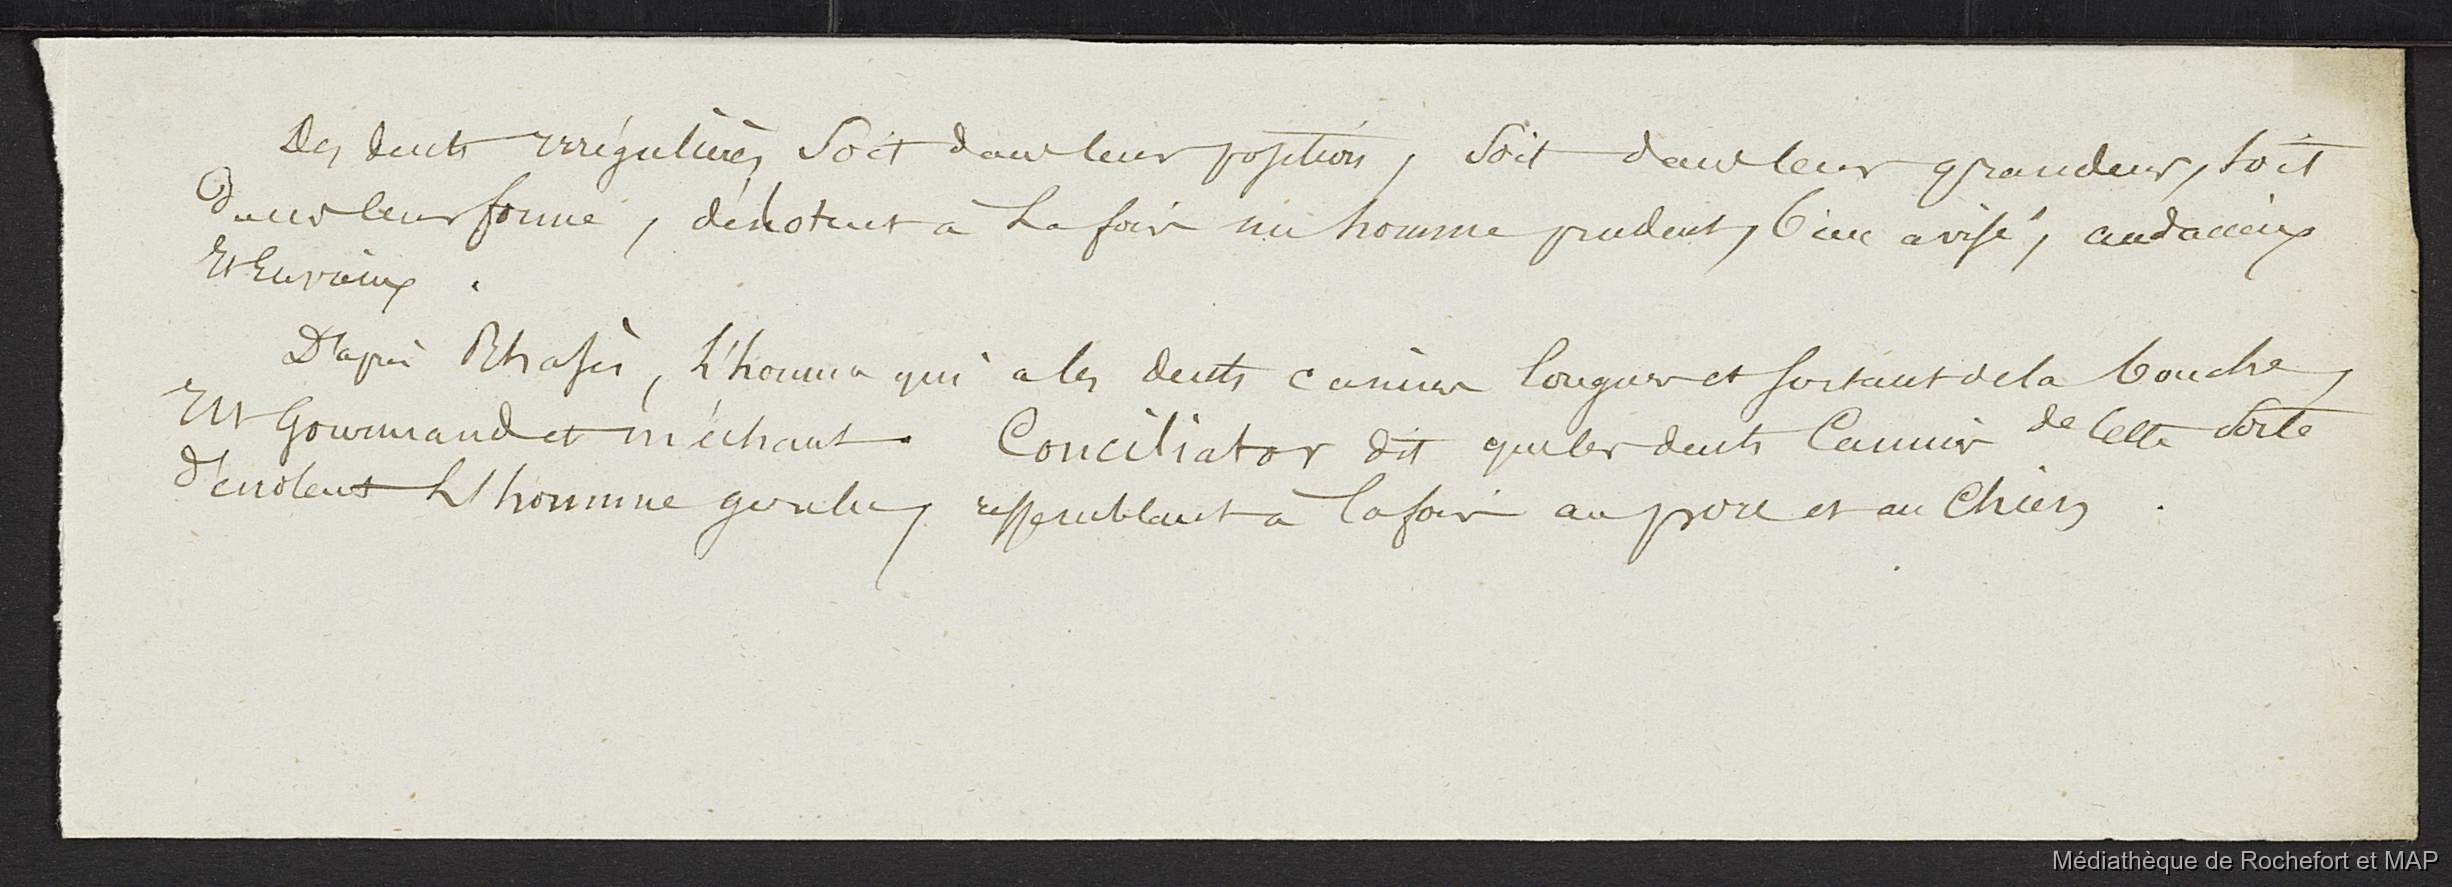 Des dents irrégulières, soit dans leur position, soit dans leur grandeur, soit
Dans leur forme, dénotent à la fois un homme prudent, bien avisé, audacieux
Et Envieux.
D'après Rhasès, l'homme qui a les dents canines longues et sortant de la bouche,
Est Gourmand et méchant. Conciliator dit que les dents Canines de cette sorte
dénotent l'homme goulu, ressemblant à la fois au porc et au Chien.
Médiathèque de Rochefort et MAP